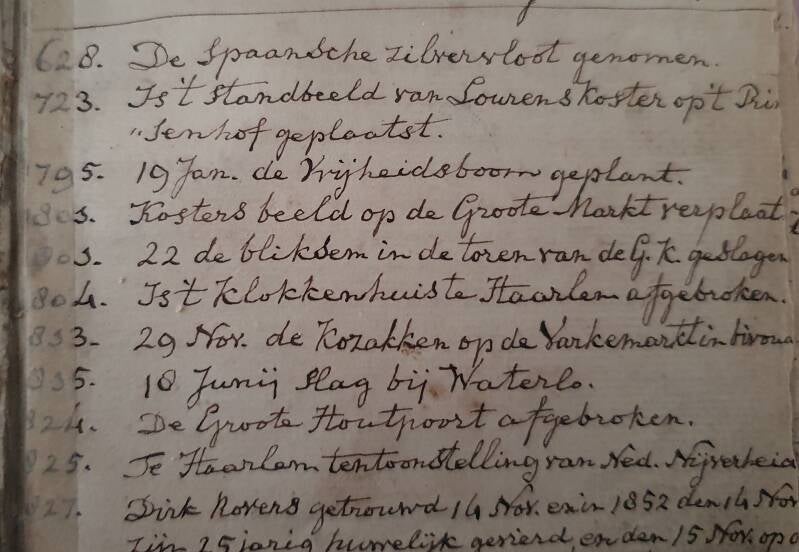 628. De Spaansche zilvervloot genomen.
723. Is't standbeeld van Lourens Koster op't Prin
"senhof geplaatst.
795. 19 Jan. de Vrijheidsboom geplant.
Kosters beeld op de Groote Markt verplaat
22 de bliksem in de toren van de G. K. geslagen
804. Is't Klokkenhuis te Haarlem afgebroken.
29 Nov. de Kozakken op de Varkemarkt in bivoua
18 Junij slag bij Waterlo.
824. De Groote Houtpoort afgebroken.
825. Te Haarlem tentoonstelling van Ned. Nijverheid
827. Dirk Rovers getrouwd 14 Nov. en in 1852 den 14 Nov
zijn 25 jarig huwelijk gevierd en den 15 Nov. op